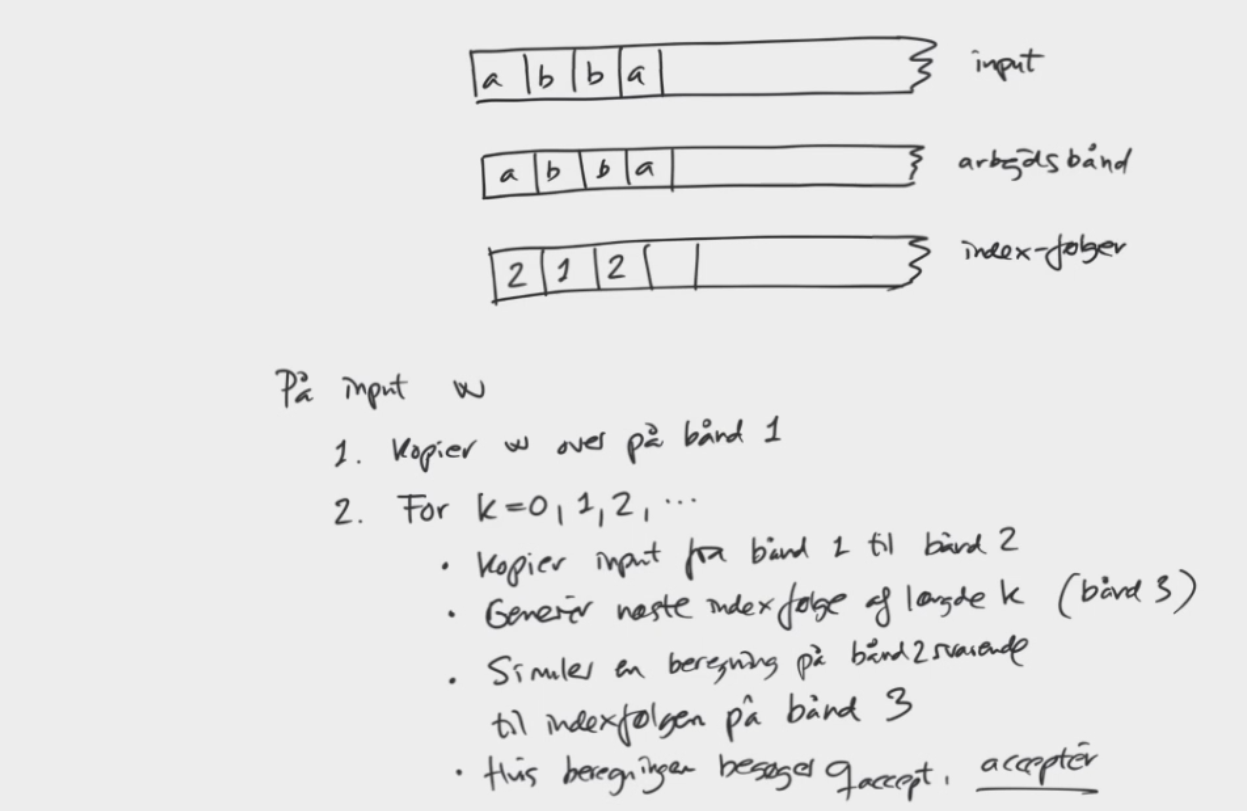 a b b a input
a b b a arbejdsbånd
2 1 2 index-følger
På input w
1. Kopier w over på bånd 1
2. For k=0, 1, 2, ...
· Kopier input fra bånd 1 til bånd 2
· Generér næste indexfølge af længde k (bånd 3)
· Simuler en beregning på bånd 2 svarende
til indexfølgen på bånd 3
· Hvis beregningen besøger qaccept, acceptér